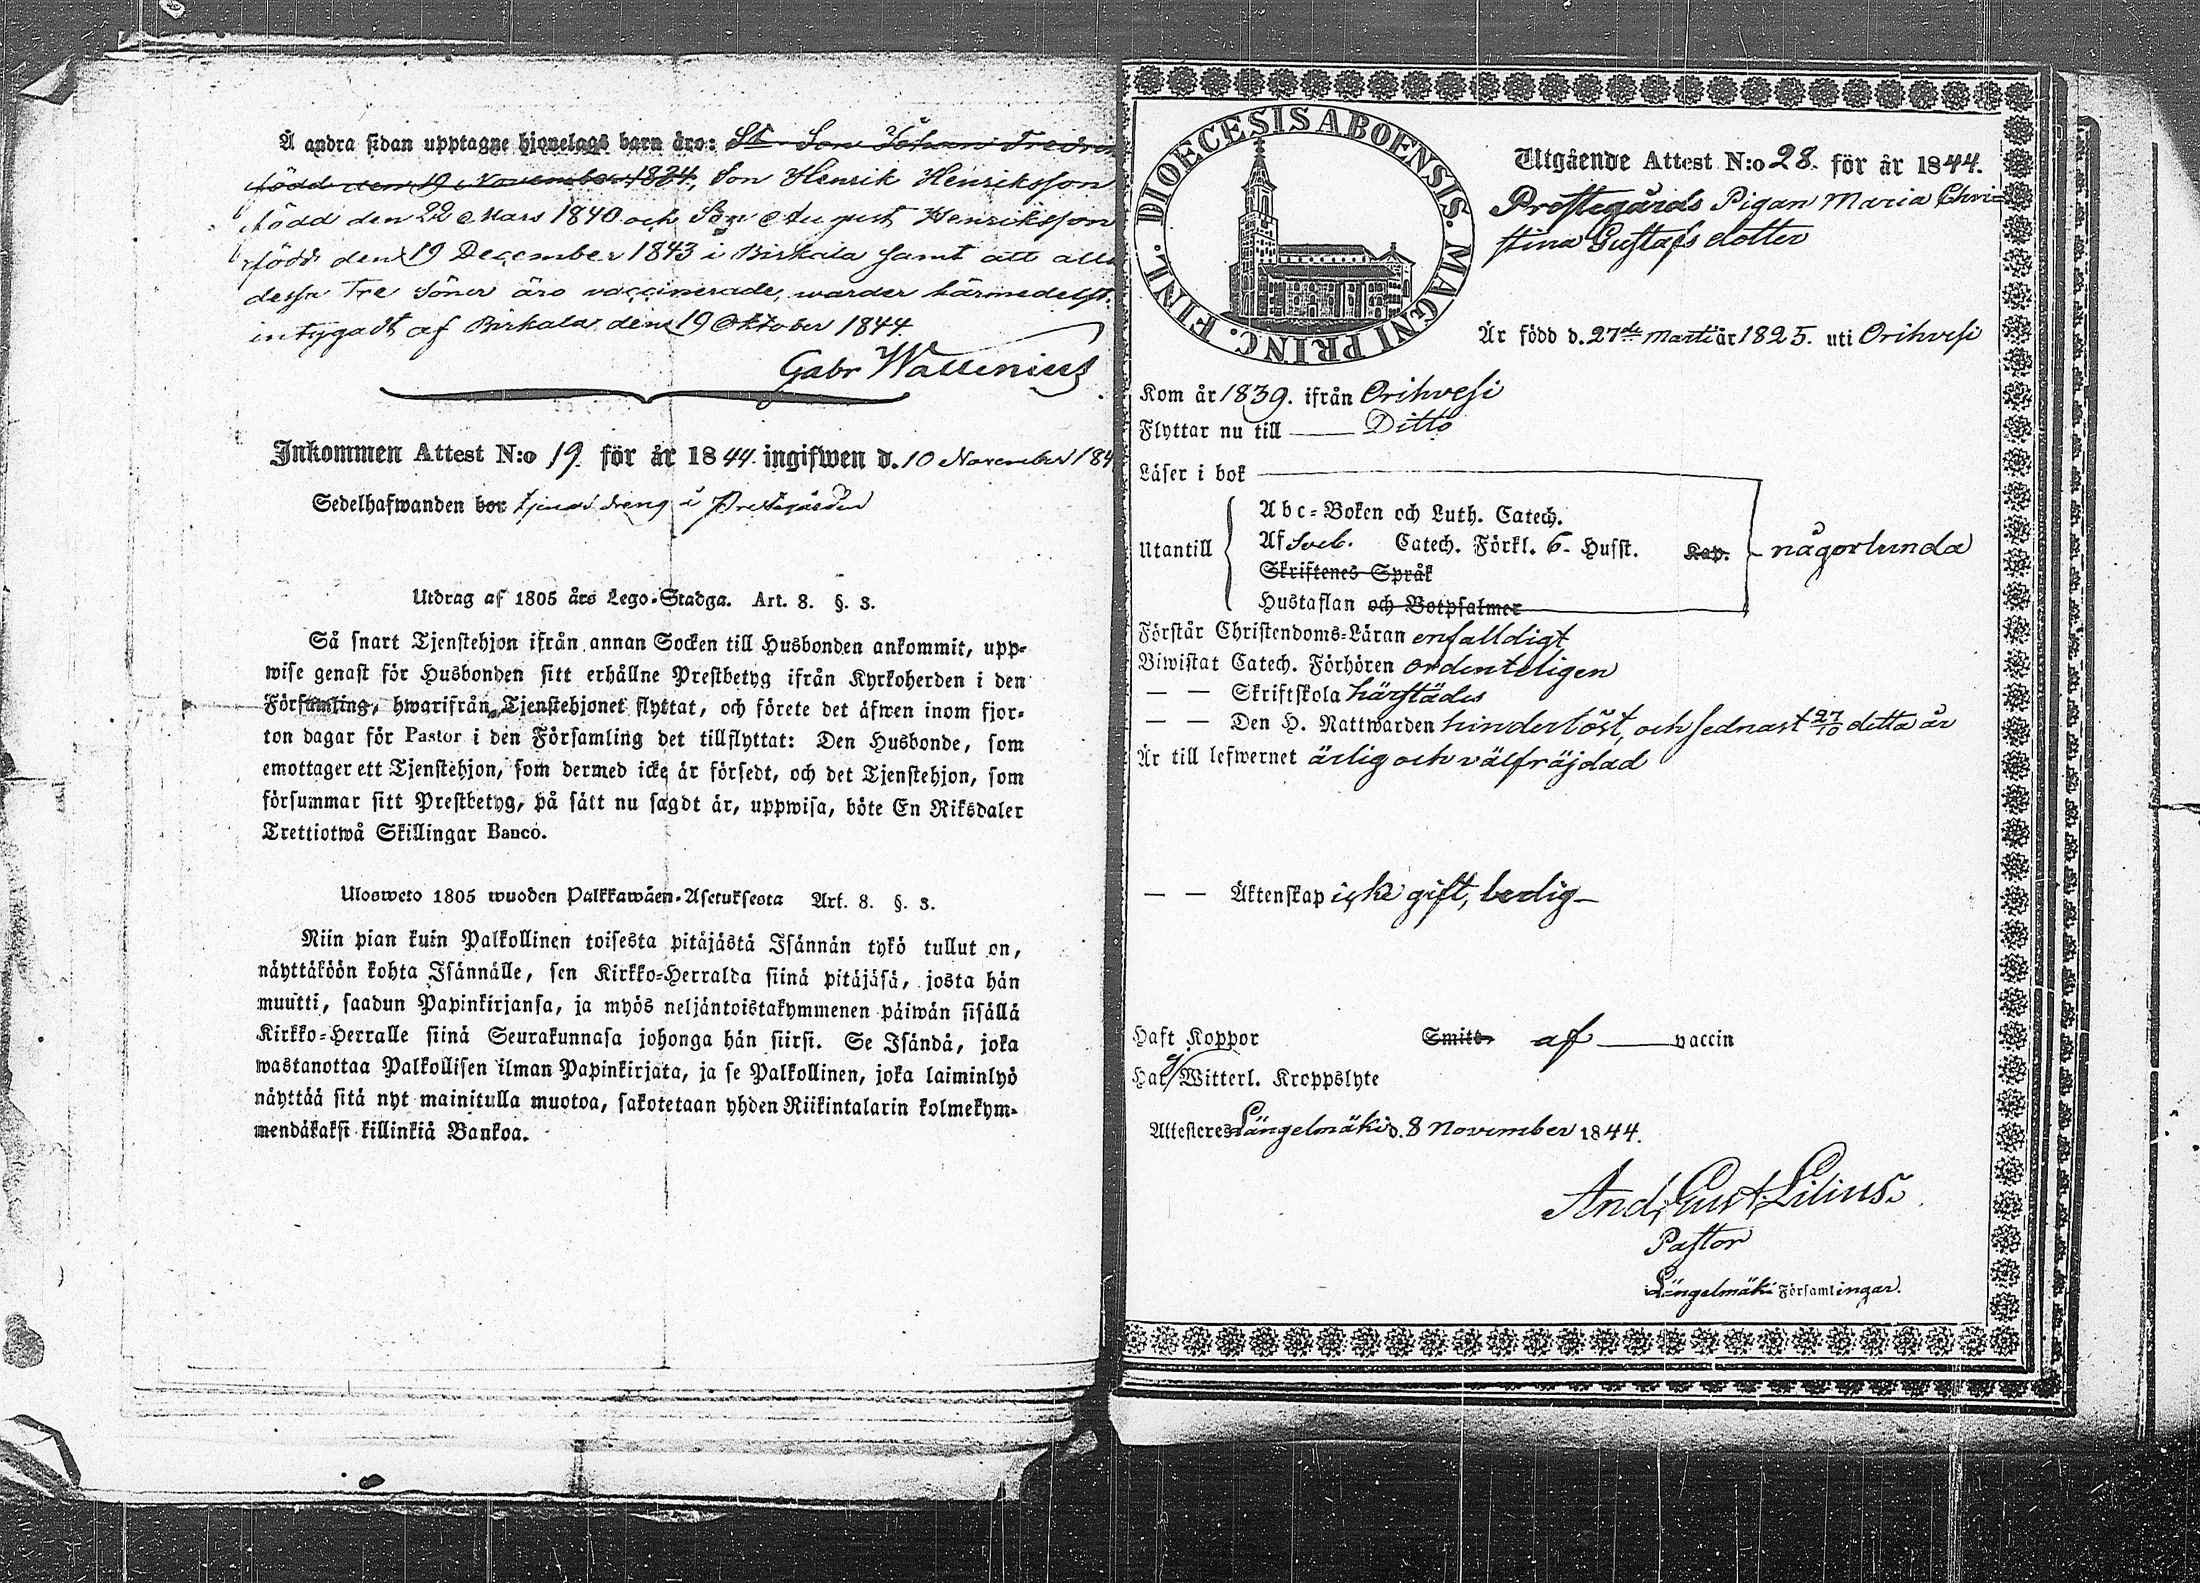 Å andra sidan upptagne hjonelags barn äro: St. Son Johan Fredric
född den 19 November 1834, Son Henrik Henriksson
född den 22 Mars 1840 och Son August Henriksson
född den 19 December 1843 i Birkala samt att alla
dessa Tre Söner äro vaccinerade, warder härmedelst
intygadt af Birkala den 19 Oktober 1844.
Gabr Wallenius
Inkommen Attest N:o 19. för år 1844. ingifwen d. 10 November 184
Sedelhafwanden bor i Prestgården
Utdrag af 1805 års Lego-Stadga. Art. 8. §. 3.
Så snart Tjenstehjon ifrån annan Socken till Husbonden ankommit, upp-
wise genast för Husbonden sitt erhållne Prestbetyg ifrån Kyrkoherden i den
Församling, hwarifrån Tjenstehjonet flyttat, och förete det äfwen inom fjor-
ton dagar för Pastor i den Församling det tillflyttat: Den Husbonde, som
emottager ett Tjenstehjon, som dermed icke är försedt, och det Tjenstehjon, som
försummar sitt Prestbetyg, på sätt nu sagdt är, uppwisa, böte En Riksdaler
Trettiotwå Skillingar Banco.
Ulosweto 1805 wuoden Palkkawäen-Asetuksesta Art. 8. §. 3.
Niin pian kuin Palkollinen toisesta pitäjästä Isännän tykö tullut on,
näyttäköön kohta Isännälle, sen Kirkko-Herralda siinä pitäjäsä, josta hän
muutti, saadun Papinkirjansa, ja myös neljäntoistakymmenen päiwän sisällä
Kirkko-Herralle siinä Seurakunnasa johonga hän siirsi. Se Isändä, joka
wastanottaa Palkollisen ilman Papinkirjata, ja se Palkollinen, joka laiminlyö
näyttää sitä nyt mainitulla muotoa, sakotetaan yhden Riikintalarin kolmekym-
mendäkaksi killinkiä Bankoa.
DIOECESIS ABOENSIS. MAGNI PRINC. FINL.
Utgående Attest N:o 28. för år 1844.
Prostegårds Pigan Maria Chri-
stina Gustafs dotter
Är född d. 27de Martii år 1825. uti Orihvesi
Kom år 1839. ifrån Orihvesi
Flyttar nu till Ditto
Läser i bok
Utantill
Abc-Boken och Luth. Catech.
Af Sveb. Catech. Förkl. 6- Hufst. Kap.
någorlunda
Skriftenes Språk
Hustaflan och Botpsalmer
Förstår Christendoms-Läran enfalldigt
Biwistat Catech. Förhören ordenteligen
— — Skriftskola härstädes
— — Den H. Nattwarden hinderlöst, och sednast 27/10 detta år
Är till lefwernet ärlig och välfräjdad
— — Äktenskap icke gift, ledig —
Haft Koppor Smitt af vaccin
Har Witterl. Kroppslyte
Attesteres Längelmäki d. 8 November 1844.
And. Gust. Lilius.
Pastor
i Längelmäki Församlingar.